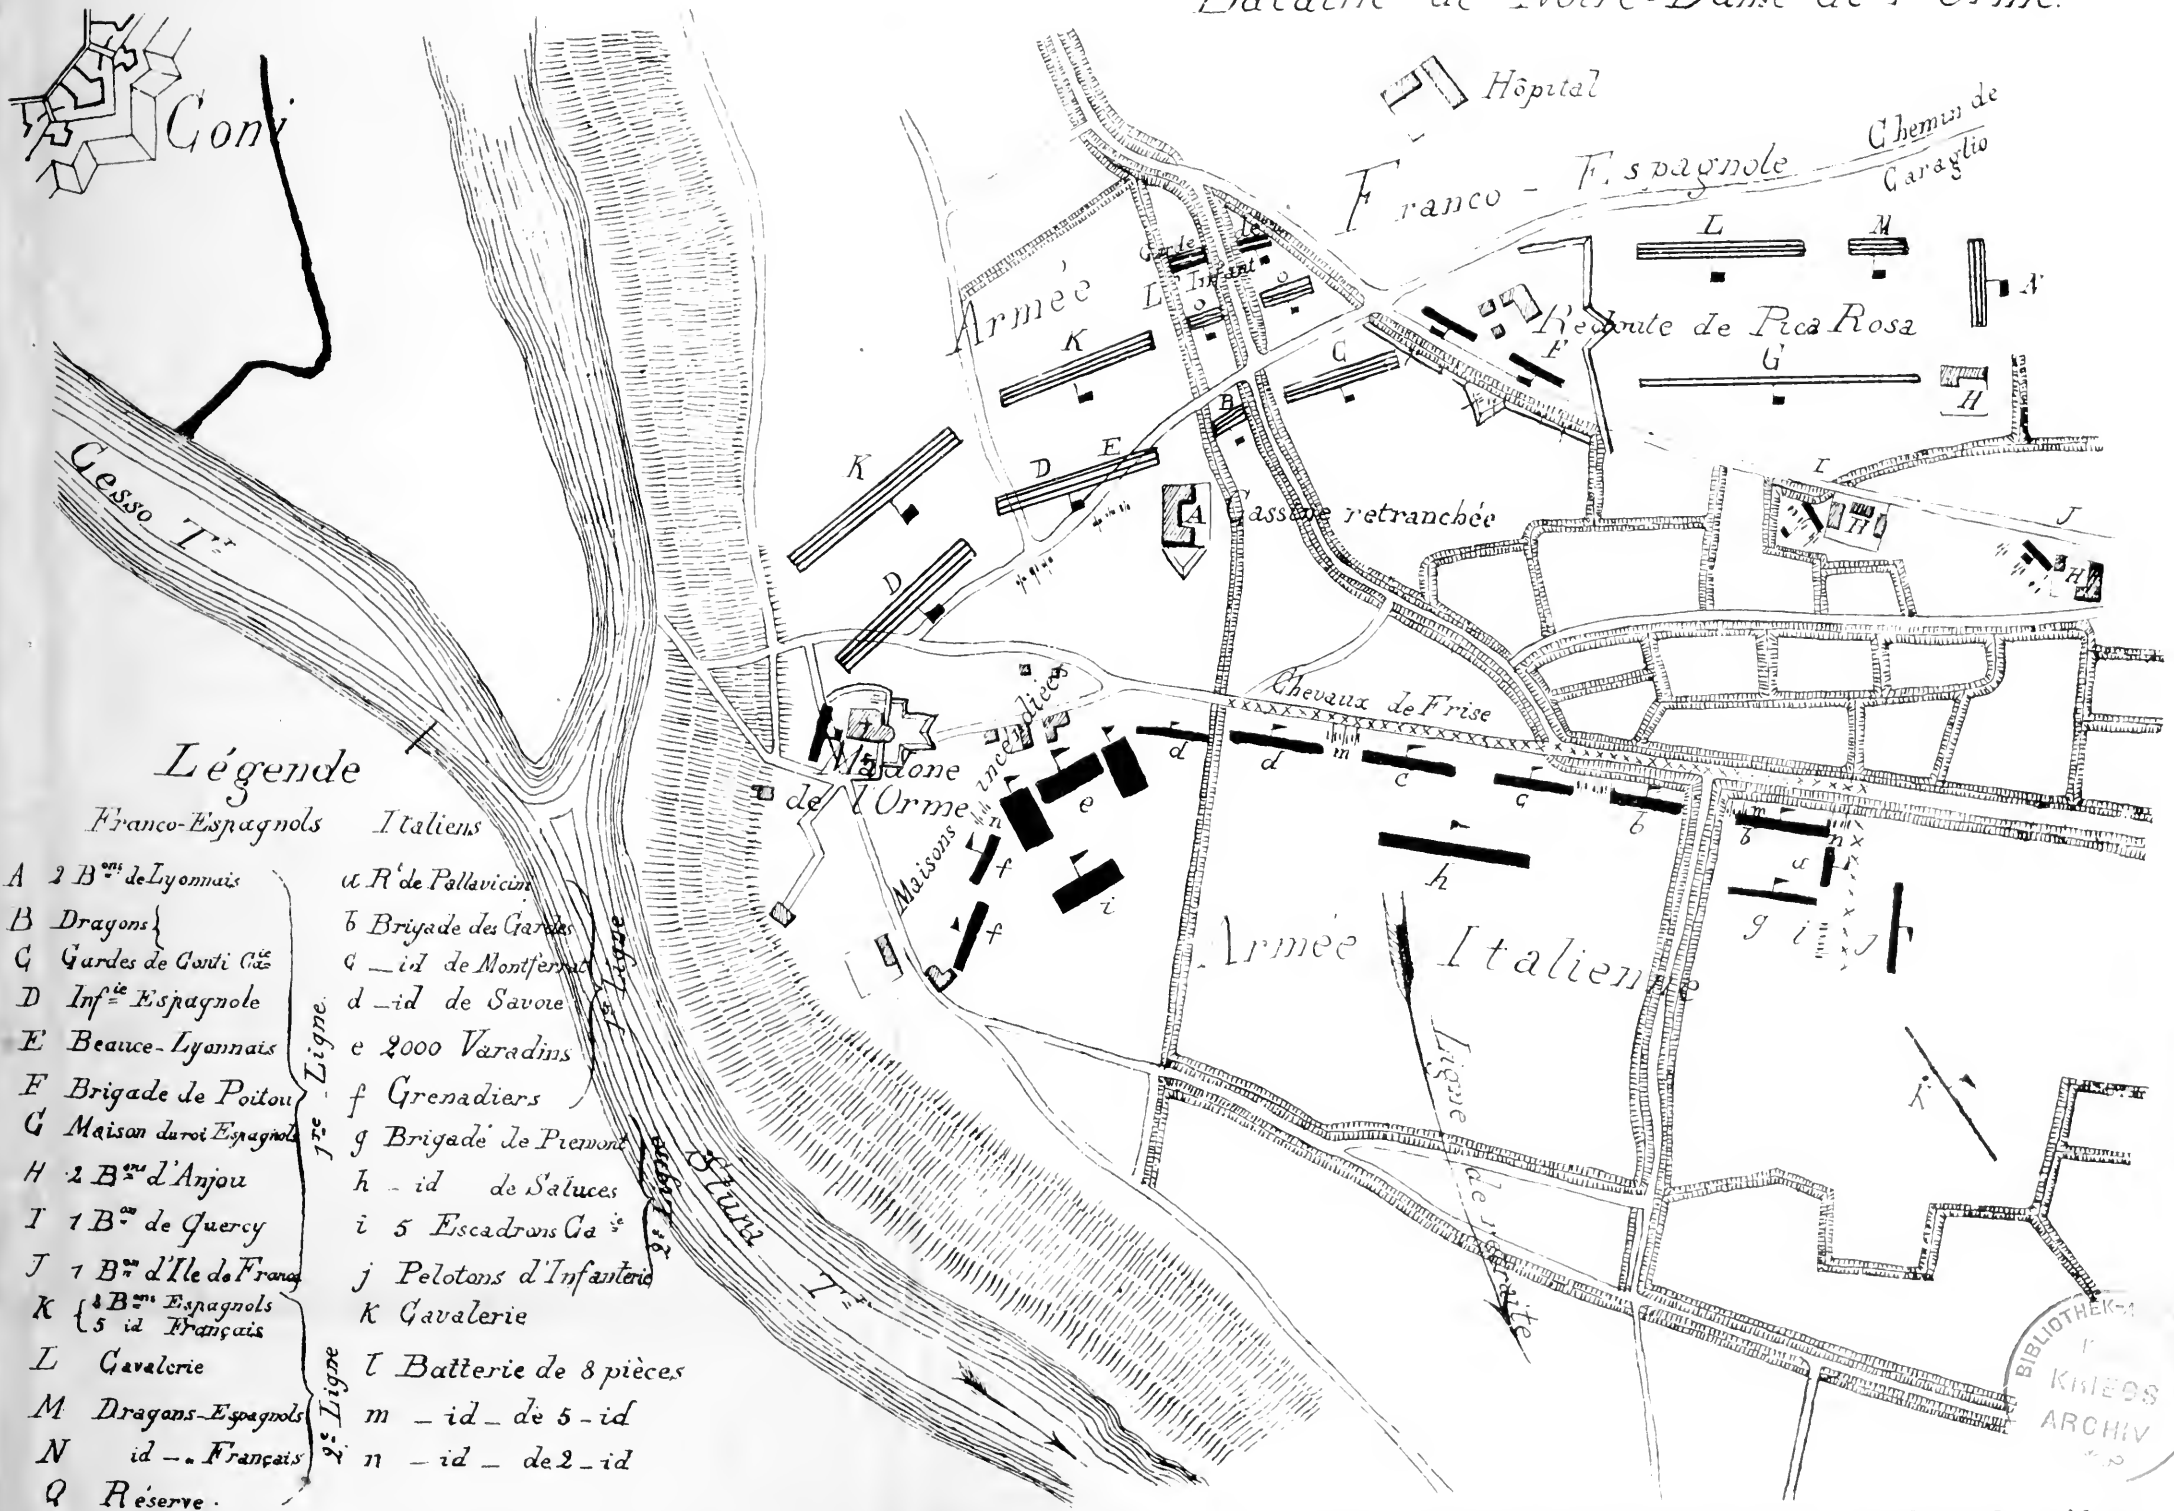 Bataille de Notre-Dame de l'Orme.
Coni
Hôpital
Chemin de
Caraglio
Armée Franco-Espagnole
L
M
N
K
O
O
C
F
Redoute de Pica Rosa
G
H
B
K
D
E
A
Cassine retranchée
I
H
J
H
D
Gesso T.r
Chevaux de Frise
Madone
de l'Orme
Maisons incendiées
d
d
m
c
c
b
m
b
n
a
n
e
f
f
i
h
g
i
J
Armée Italienne
Ligne de retraite
K
Stura T.r
Légende
Franco-Espagnols Italiens
A 2 B.ons de Lyonnais
B Dragons
C Gardes de Conti Ca.ie
D Inf.ie Espagnole
E Beauce-Lyonnais
F Brigade de Poitou
G Maison du roi Espagnols
H 2 B.ons d'Anjou
I 1 B.on de Quercy
J 1 B.on d'Ile de France
1re Ligne
K 8 B.ons Espagnols
5 id Français
L Cavalerie
M Dragons-Espagnols
N id -„ Français
2e Ligne
Q Réserve.
a R.t de Pallavicini
b Brigade des Gardes
c _id de Montferrat
d _id de Savoie
e 2000 Varadins
f Grenadiers
1re Ligne
g Brigade de Piemont
h _ id de Saluces
i 5 Escadrons Ca.ie
j Pelotons d'Infanterie
2e Ligne
K Cavalerie
l Batterie de 8 pièces
m _id_ de 5_id
n _id_ de 2_id
BIBLIOTHEK
KRIEGS
ARCHIV